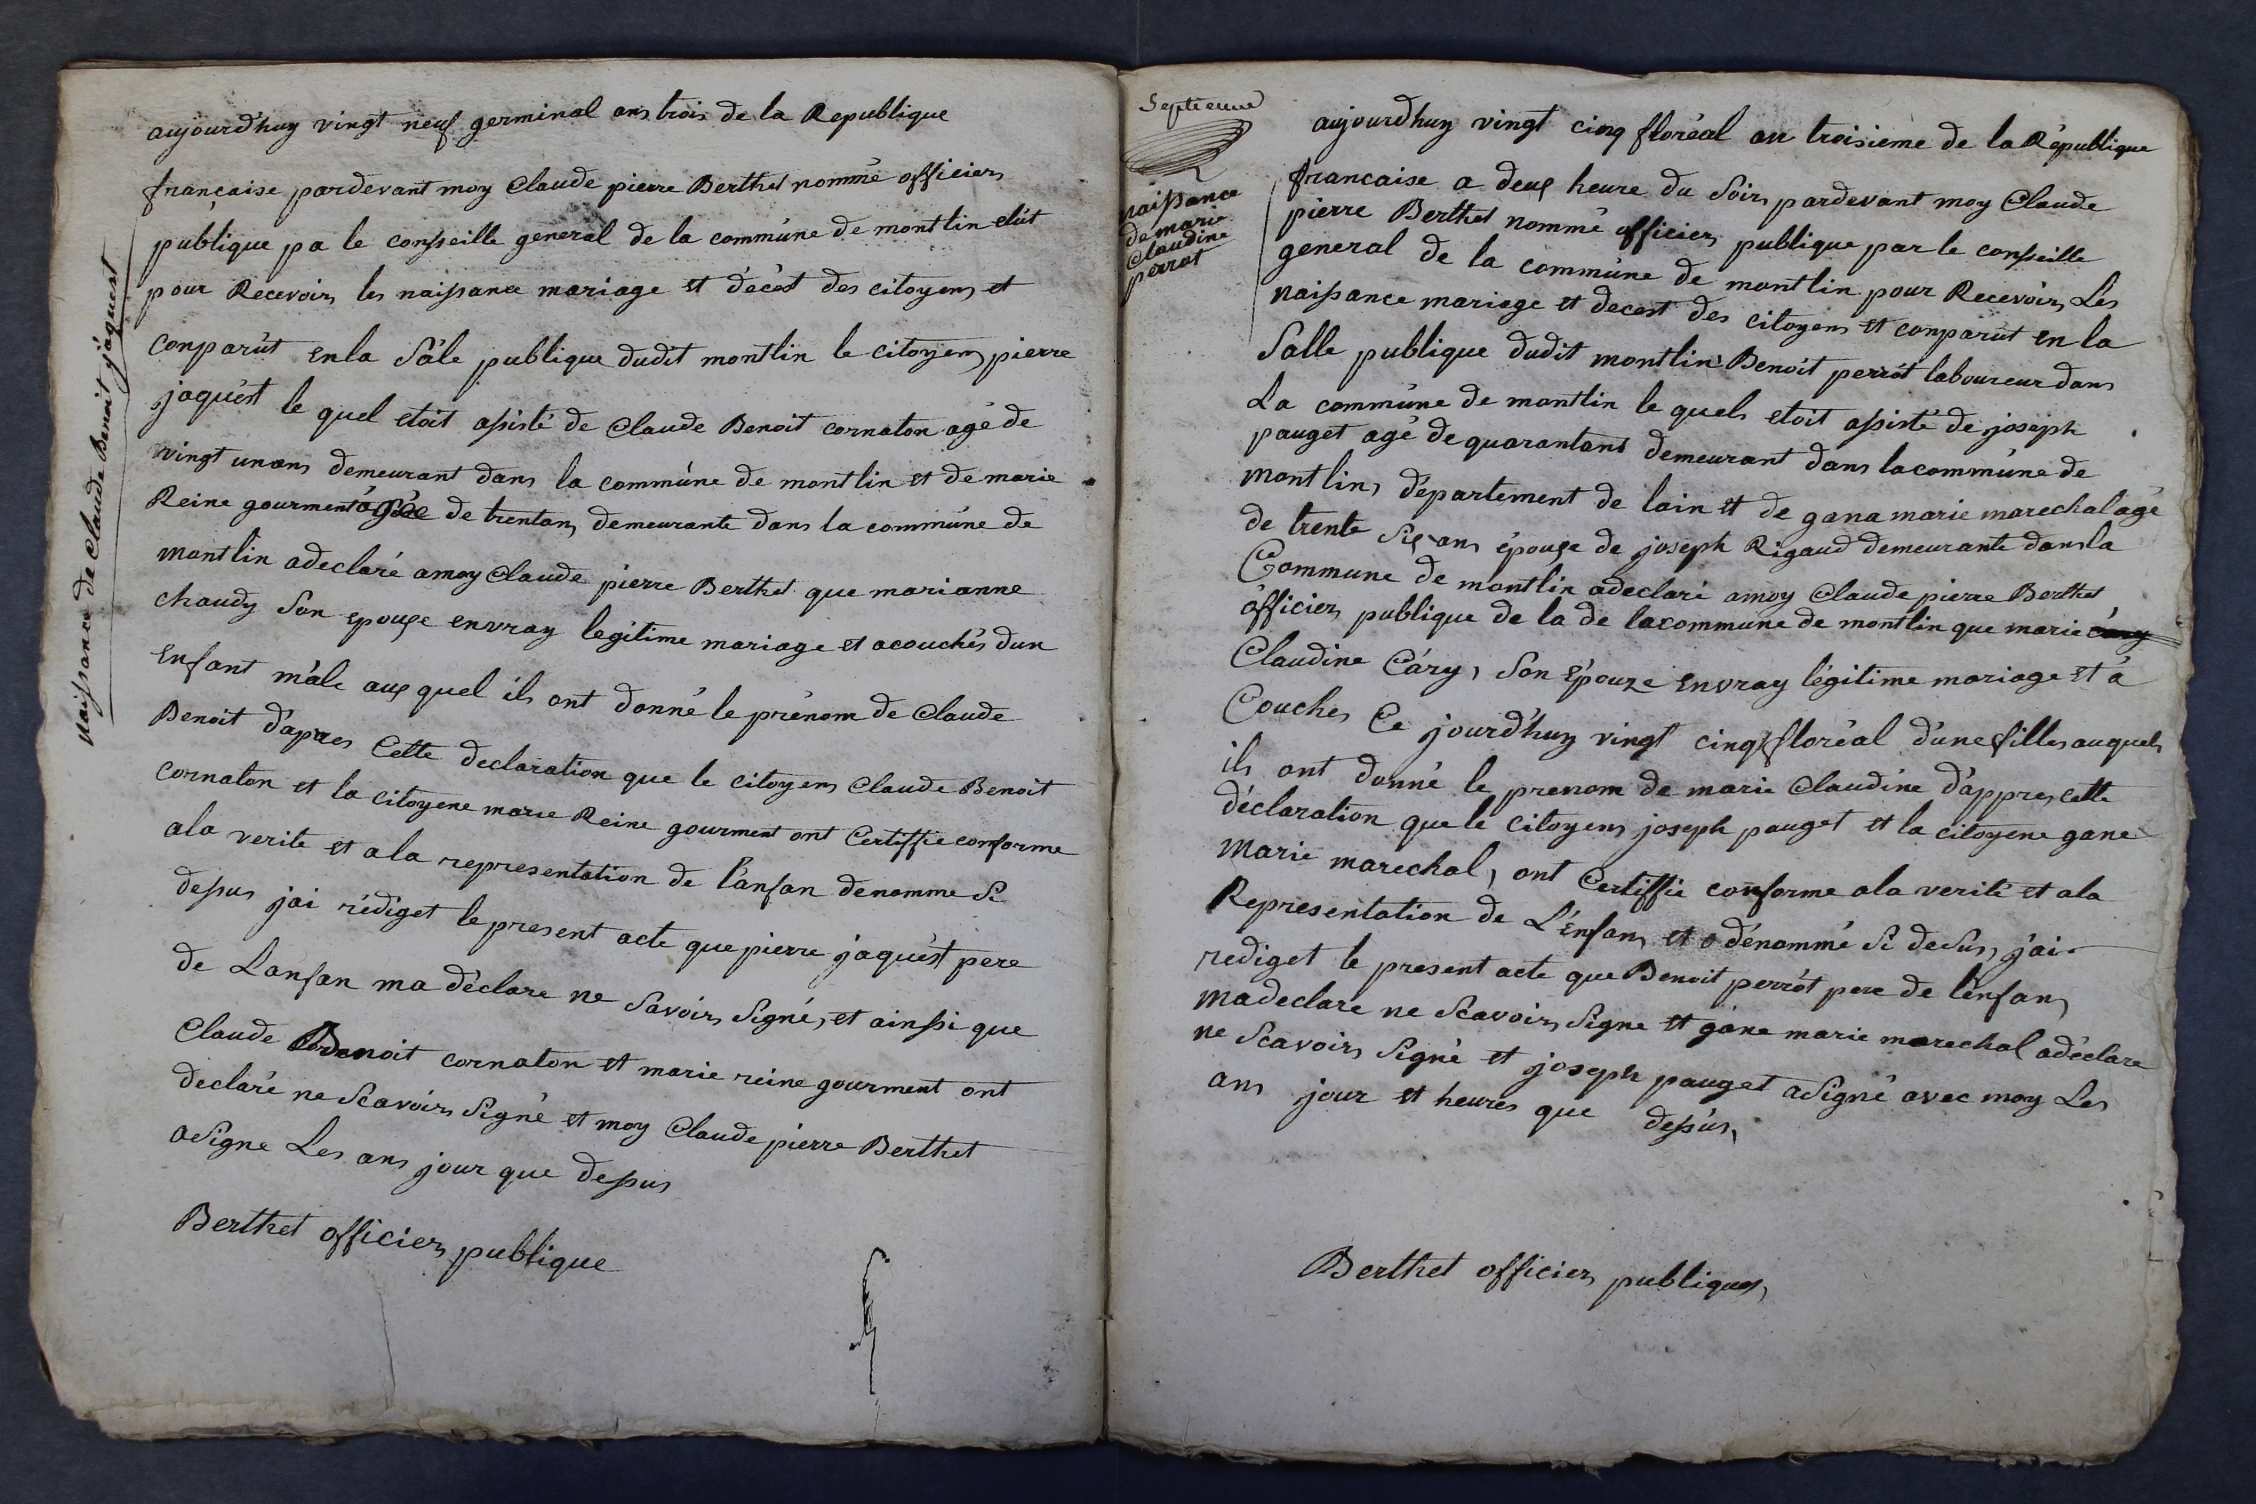 naissance de Claude Benoit jáquest
aujourd'huy vingt neuf germinal ans trois de la Republique
française pardevant moy Claude pierre Berthet nommé officiers
publique pa le consseille general de la commúne de montlin elút
pour Recevoirs les naissance mariage et décèst des citoyens et
conparút en la Sále publique dudit montlin le citoyens pierre
jaquést le quel etoit assisté de Claude Benoit cornaton agé de
vingt unans demeurant dans la commúne de montlin et de marie
Reine gourment ágée de trentans demeurante dans la commúne de
montlin adeclaré amoy Claude pierre Berthet que marianne
chaudy Son epouxe envray legitime mariage et acouchés dun
Enfant mále aux quel ils ont donné le prénom de Claude
Benoit d'apres Cette declaration que le citoyens Claude Benoit
cornaton et la citoyene marie Reine gourment ont Certiffie conforme
ala verite et ala representation de l'anfan denomme Si
dessus jai rédiget le present acte que pierre jaquést pere
de Lanfan ma déclare ne Savoirs Signé, et ainssi que
Claude Benoit cornaton et marie reine gourment ont
declaré ne Scavoirs Signé et moy Claude pierre Berthet
aSigne Les ans jour que dessus
Berthet officiers publique
Septieme
naissance
de marie
Claudine
perrot
aujourdhuy vingt cinq floréal an troisieme de la République
francaise a deux heure du Soirs pardevant moy Claude
pierre Berthet nommé officiers publique par le consseille
general de la commúne de montlin pour Recevoirs Les
naissance mariage et decest des citoyens et conparút en la
Salle publique dudit montlin Benoit perrót laboureur dans
La commúne de montlin le quels etoit assisté de joseph
pauget agé de quarantans demeurant dans lacommúne de
montlins département de lain et de gana marie marechal agé
de trente Six ans épouxe de joseph Rigaud demeurante dans la
Commune de montlin adeclaré amoy Claude pierre Berthet
officiers publique de la de lacommune de montlin que marie cáry
Claudine Cáry, Son épouze envray légitime mariage et á
Couches Ce jourd'huy vingt cinq floréal d'une filles auquels
ils ont donné le prenom de marie Claudine d'appres cette
déclaration que le Citoyens joseph pauget et la citoyene gane
Marie marechal, ont Certiffie conforme ala verité et ala
Representation de L'énfans et dénommé Si deSús, j'ai
rediget le present acte que Benoit perrót pere de lénfans
madeclare ne Scavoirs Signe et gane marie marechal adéclare
ne Scavoirs Signé et joseph pauget aSigné avec moy Les
ans jour et heures que dessús,
Berthet officiers publiques